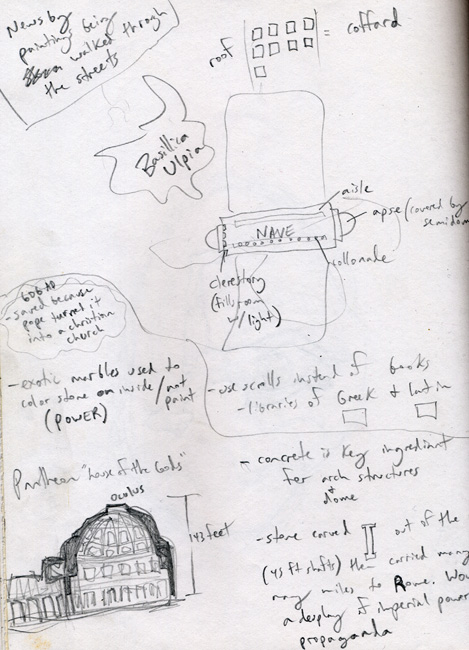 News by
paintings being
walked through
the streets
roof
= coffard
Basillica
Ulpia
aisle
apse (covered by
semidom
NAVE
collonade
clerestory
(fills room
w/ light)
606 AD
- saved because
pope turned it
into a christian
church
- exotic marbles used to
color stone on inside / not
paint
(POWER)
- use scrolls instead of books
- libraries of Greek & Latin
Pantheon "house of the Gods"
oculus
143 feet
- concrete is key ingrediant
for arch structures
& dome
- stone carved out of the
(45 ft shafts) then carried many
many miles to Rome. Wow
a display of imperial power
propaganda